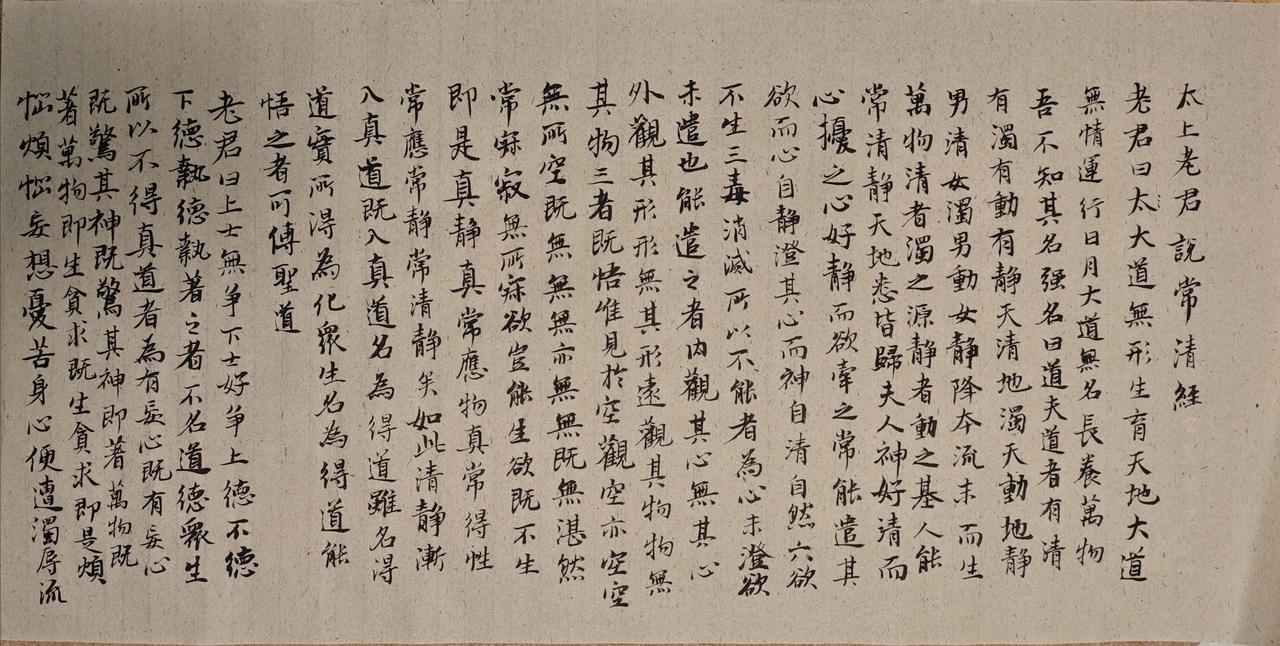 太上老君説常清経
老君曰太大道無形生育天地大道
無情運行日月大道無名長養萬物
吾不知其名强名曰道夫道者有清
有濁有動有静天清地濁天動地静
男清女濁男動女静降本流末而生
萬物清者濁之源静者動之基人能
常清静天地悉皆歸夫人神好清而
心擾之心好静而欲牽之常能遣其
欲而心自静澄其心而神自清自然六欲
不生三毒消滅所以不能者為心未澄欲
未遣也能遣之者内觀其心無其心
外觀其形形無其形遠觀其物物無
其物三者既悟惟見於空觀空亦空空
無所空既無無無亦無無無既無湛然
常寂寂無所寂欲豈能生欲既不生
即是真静真常應物真常得性
常應常静常清静矣如此清静漸
入真道既入真道名為得道雖名得
道實所得為化衆生名為得道能
悟之者可傳聖道
老君曰上士無争下士好争上德不德
下德執德執著之者不名道德衆生
所以不得真道者為有妄心既有妄心
既驚其神既驚其神即著萬物既
著萬物即生貪求既生貪求即是煩
惱煩惱妄想憂苦身心便遭濁辱流